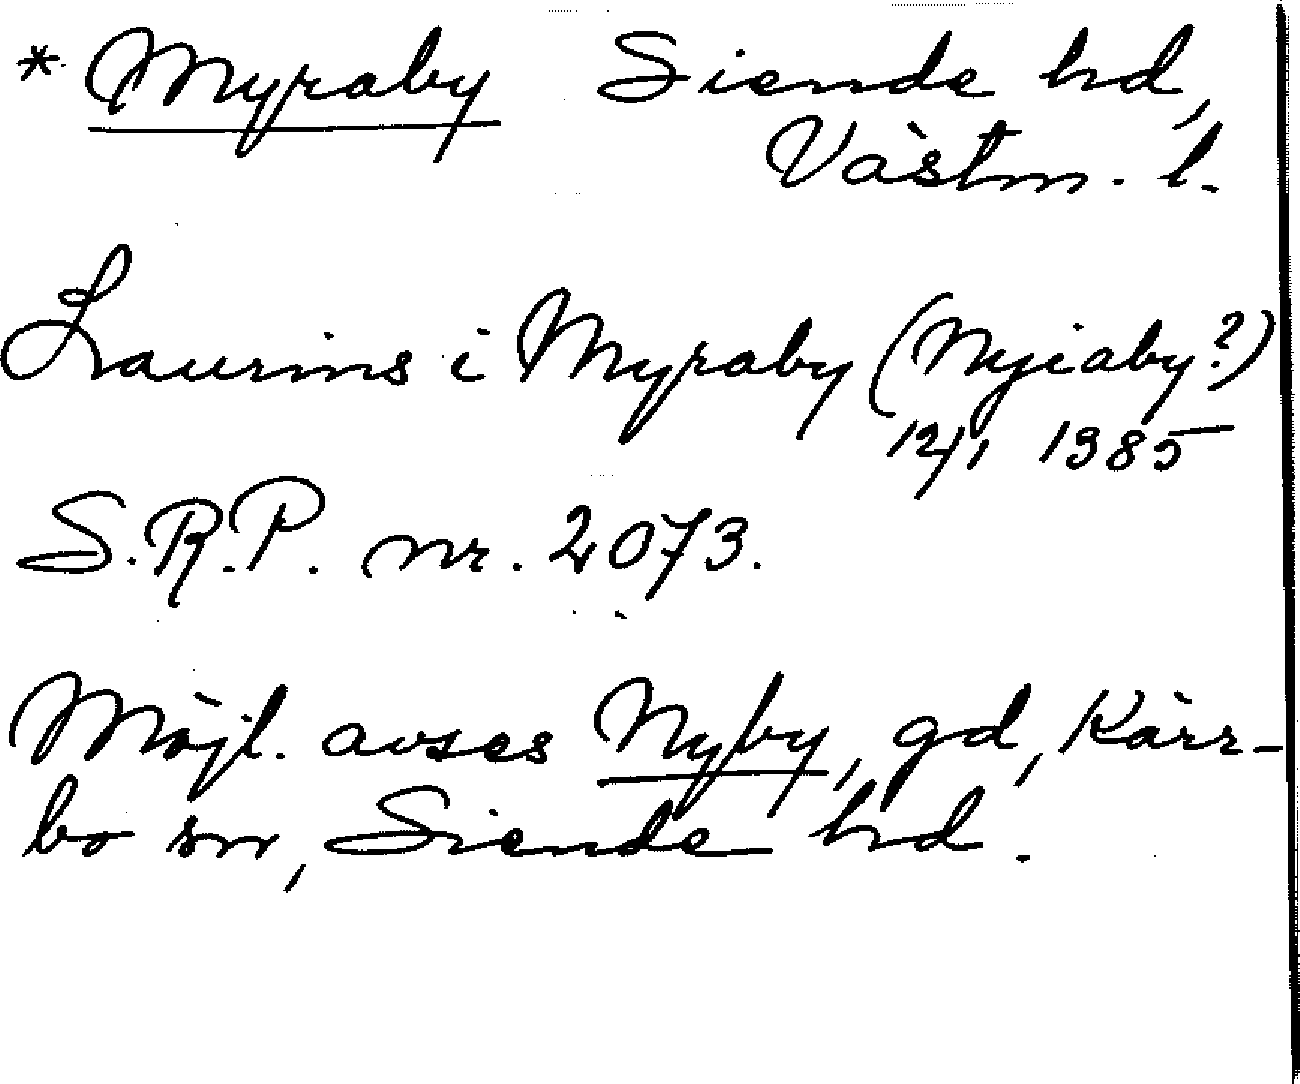 * Myraby Siende hd,
Västm. l.
Laurins i Myraby (Nyiaby?)
12/1 1385
S.R.P. nr. 2073.
Möjl. avses Nyby, gd, Kärr-
bo sn, Siende hd.